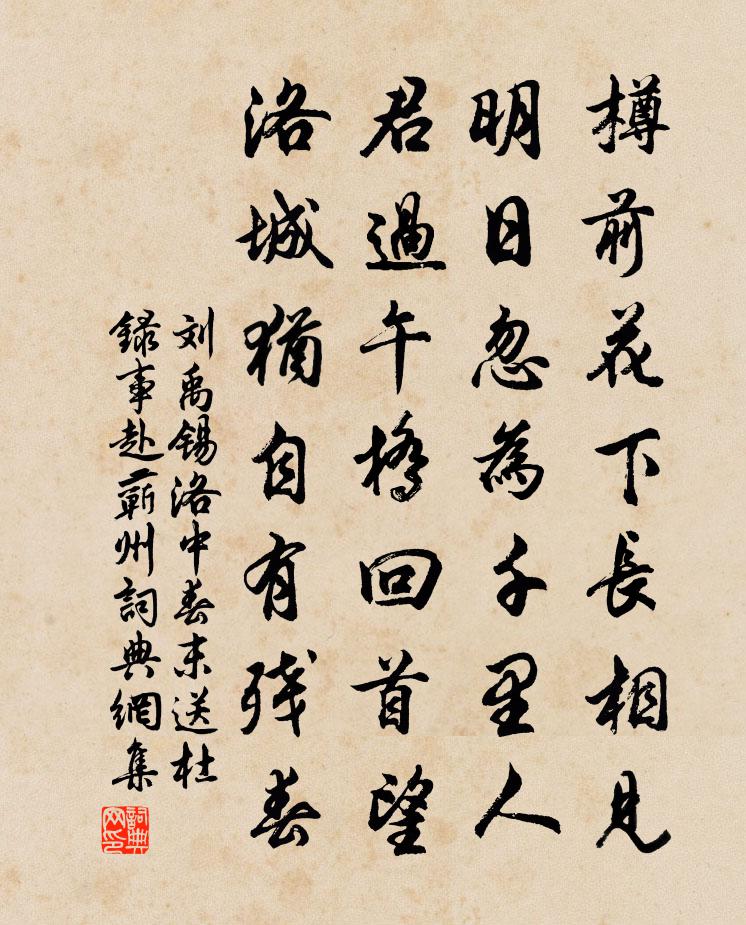 樽前花下長相見
明日忽為千里人
君過午橋回首望
洛城猶自有残春
刘禹錫洛中春末送杜
録事赴蘄州詞典網集
詞典网印